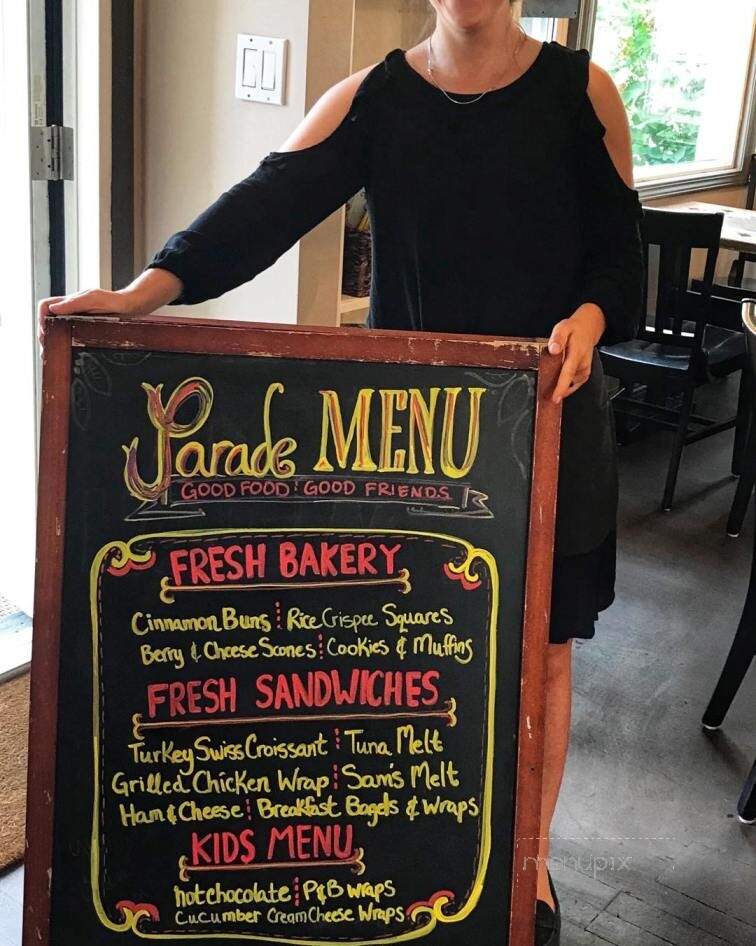 Parade MENU
GOOD FOOD : GOOD FRIENDS
FRESH BAKERY
Cinnamon Buns : Rice Crispee Squares
Berry & Cheese Scones : Cookies & Muffins
FRESH SANDWICHES
Turkey Swiss Croissant : Tuna Melt
Grilled Chicken Wrap : Sam's Melt
Ham & Cheese : Breakfast Bagels & Wraps
KIDS MENU
hot chocolate : P&B wraps
Cucumber Cream Cheese Wraps
menupix